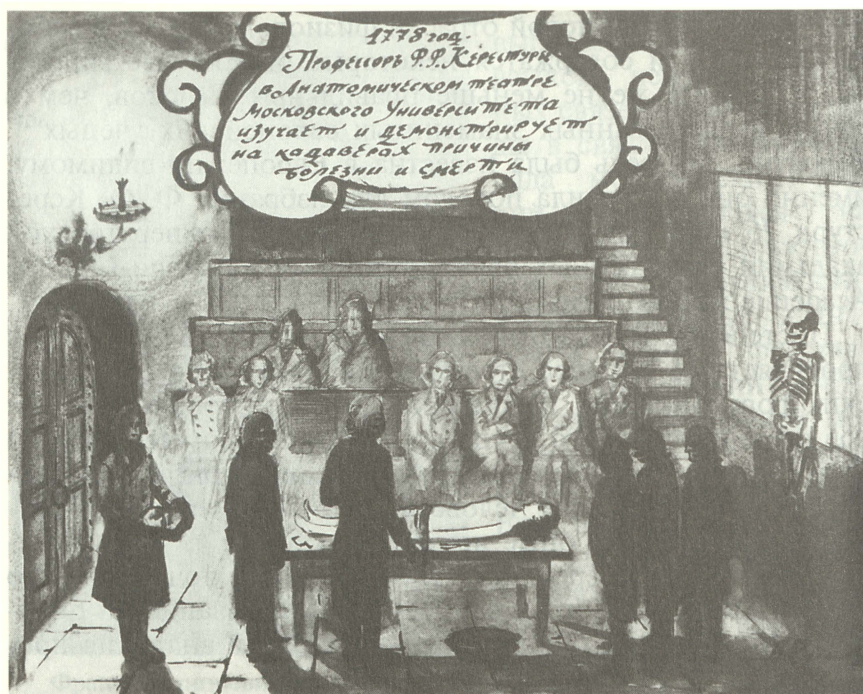 1778 год.
Профессоръ Ф.Ф. Керестури
в Анатомическом театре
Московского Университета
изучает и демонстрирует
на кадаверах причины
болезни и смерти